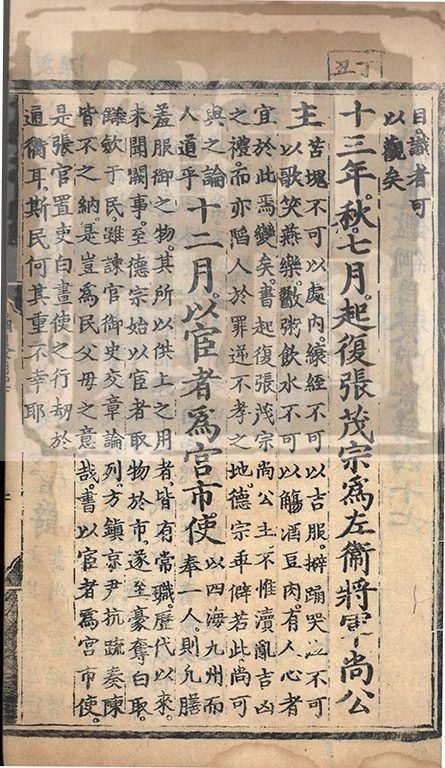 丁丑
目。識者可
以觀矣
十三年。秋。七月。起復張茂宗爲左衞將軍尚公
主
苫塊不可以處內。縗絰不可以吉服。擗踊哭泣不可
以歌笑燕樂。歠粥飲水不可以觴酒豆肉。有人心者
宜於此焉變矣。書起復張茂宗尚公主不惟瀆亂吉凶
之禮。而亦陷人於罪逆不孝之地。德宗乖僻若此。尚可
與之論
人道乎
十二月。以宦者爲宮市使
以四海九州而
奉一人。則凡膳
羞服御之物。其所以供上之用者。皆有常職。歷代以來。
未聞闕事。至德宗始以宦者取物於市。遂至豪奪白取。
歛于民。雖諫官御史交章論列。方鎮京尹抗疏奏陳
皆不之納。是豈爲民父母之意哉。書以宦者爲宮市使。
是張官置吏白晝使之行劫於
通衢耳。斯民何其重不幸耶